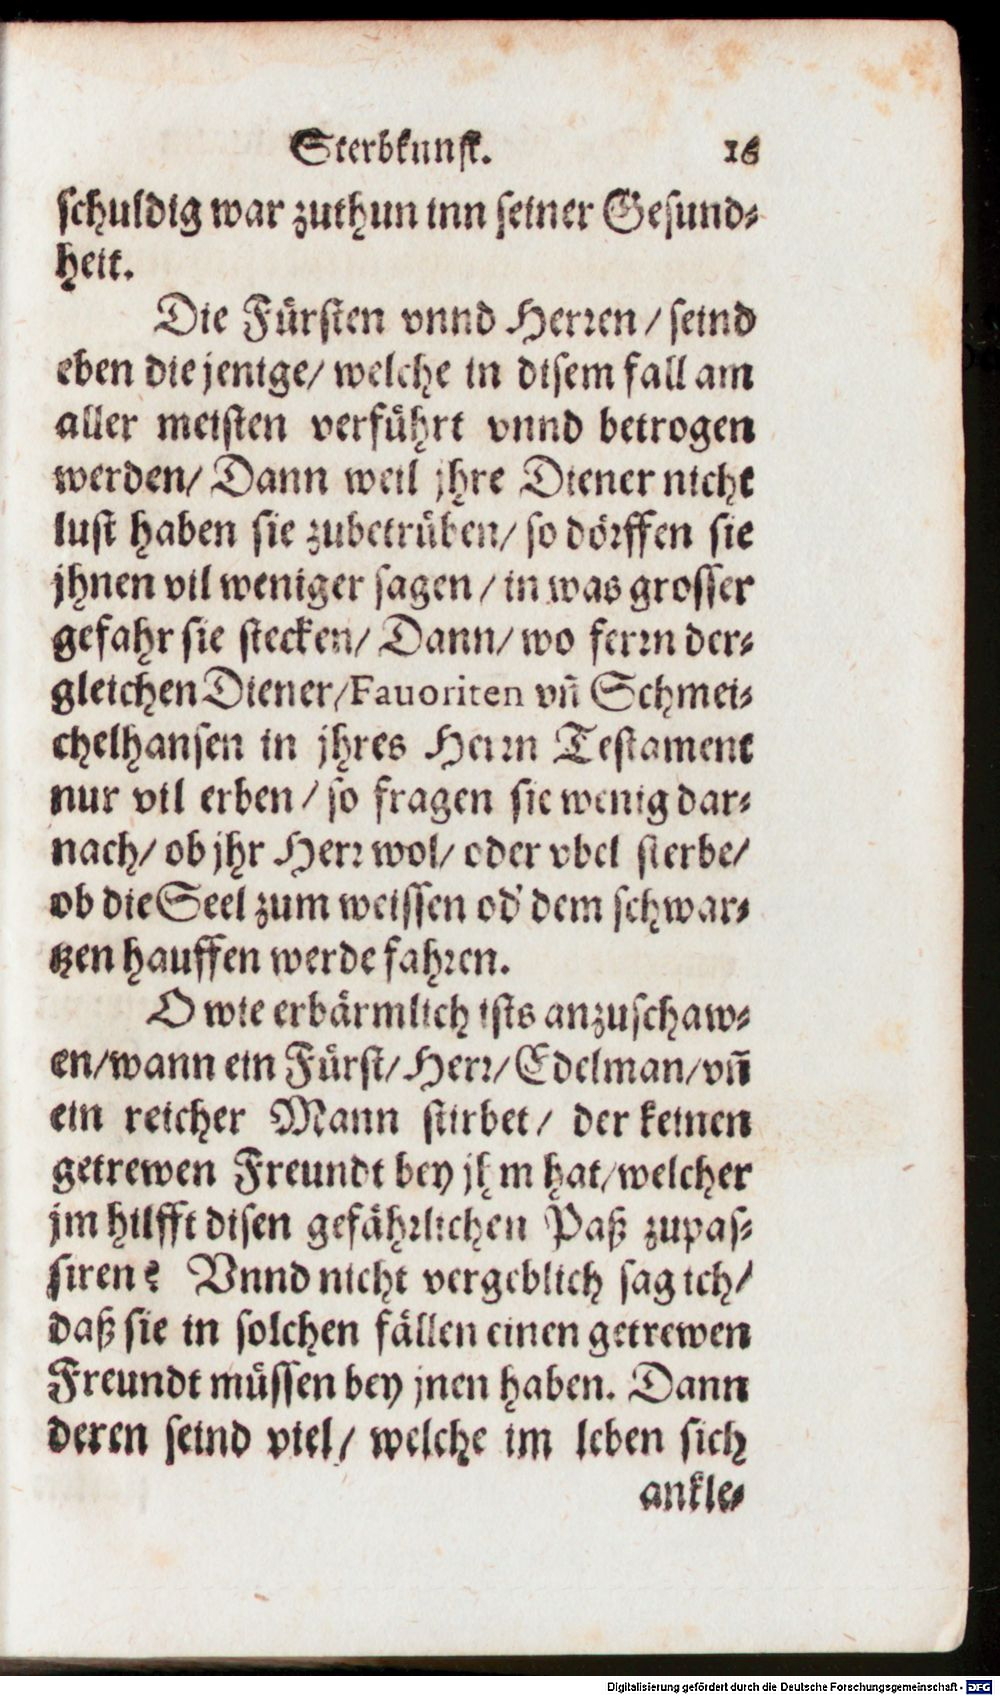 Sterbkunst. 16
schuldig war zuthun inn seiner Gesund-
heit.
Die Fürsten vnnd Herren / seind
eben die jenige/ welche in disem fall am
aller meisten verführt vnnd betrogen
werden/ Dann weil jhre Diener nicht
lust haben sie zubetrüben/ so dörffen sie
jhnen vil weniger sagen / in was grosser
gefahr sie stecken/ Dann/ wo ferrn der-
gleichen Diener/Fauoriten vñ Schmei-
chelhansen in jhres Herrn Testament
nur vil erben / so fragen sie wenig dar-
nach/ ob jhr Herr wol/ oder vbel sterbe/
ob die Seel zum weissen od' dem schwar-
tzen hauffen werde fahren.
O wie erbärmlich ists anzuschaw-
en/wann ein Fürst/ Herr/ Edelman/vñ
ein reicher Mann stirbet / der keinen
getrewen Freundt bey jhm hat/welcher
jm hilfft disen gefährlichen Paß zupas-
siren? Vnnd nicht vergeblich sag ich/
daß sie in solchen fällen einen getrewen
Freundt müssen bey jnen haben. Dann
deren seind viel/ welche im leben sich
ankle-
Digitalisierung gefördert durch die Deutsche Forschungsgemeinschaft - DFG